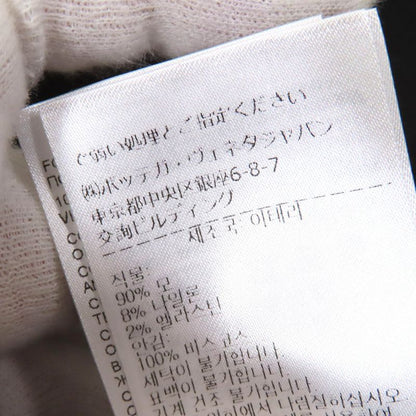 で弱い処理とご指定ください
㈱ボッテガ・ヴェネタジャパン
東京都中央区銀座6-8-7
交詢ビルディング
제조국 이태리
직물:
90% 모
8% 나일론
2% 엘라스틴
안감:
100% 비스코스
세탁이 불가입니다
표백이 불가입니다
기계 건조 불가입니다